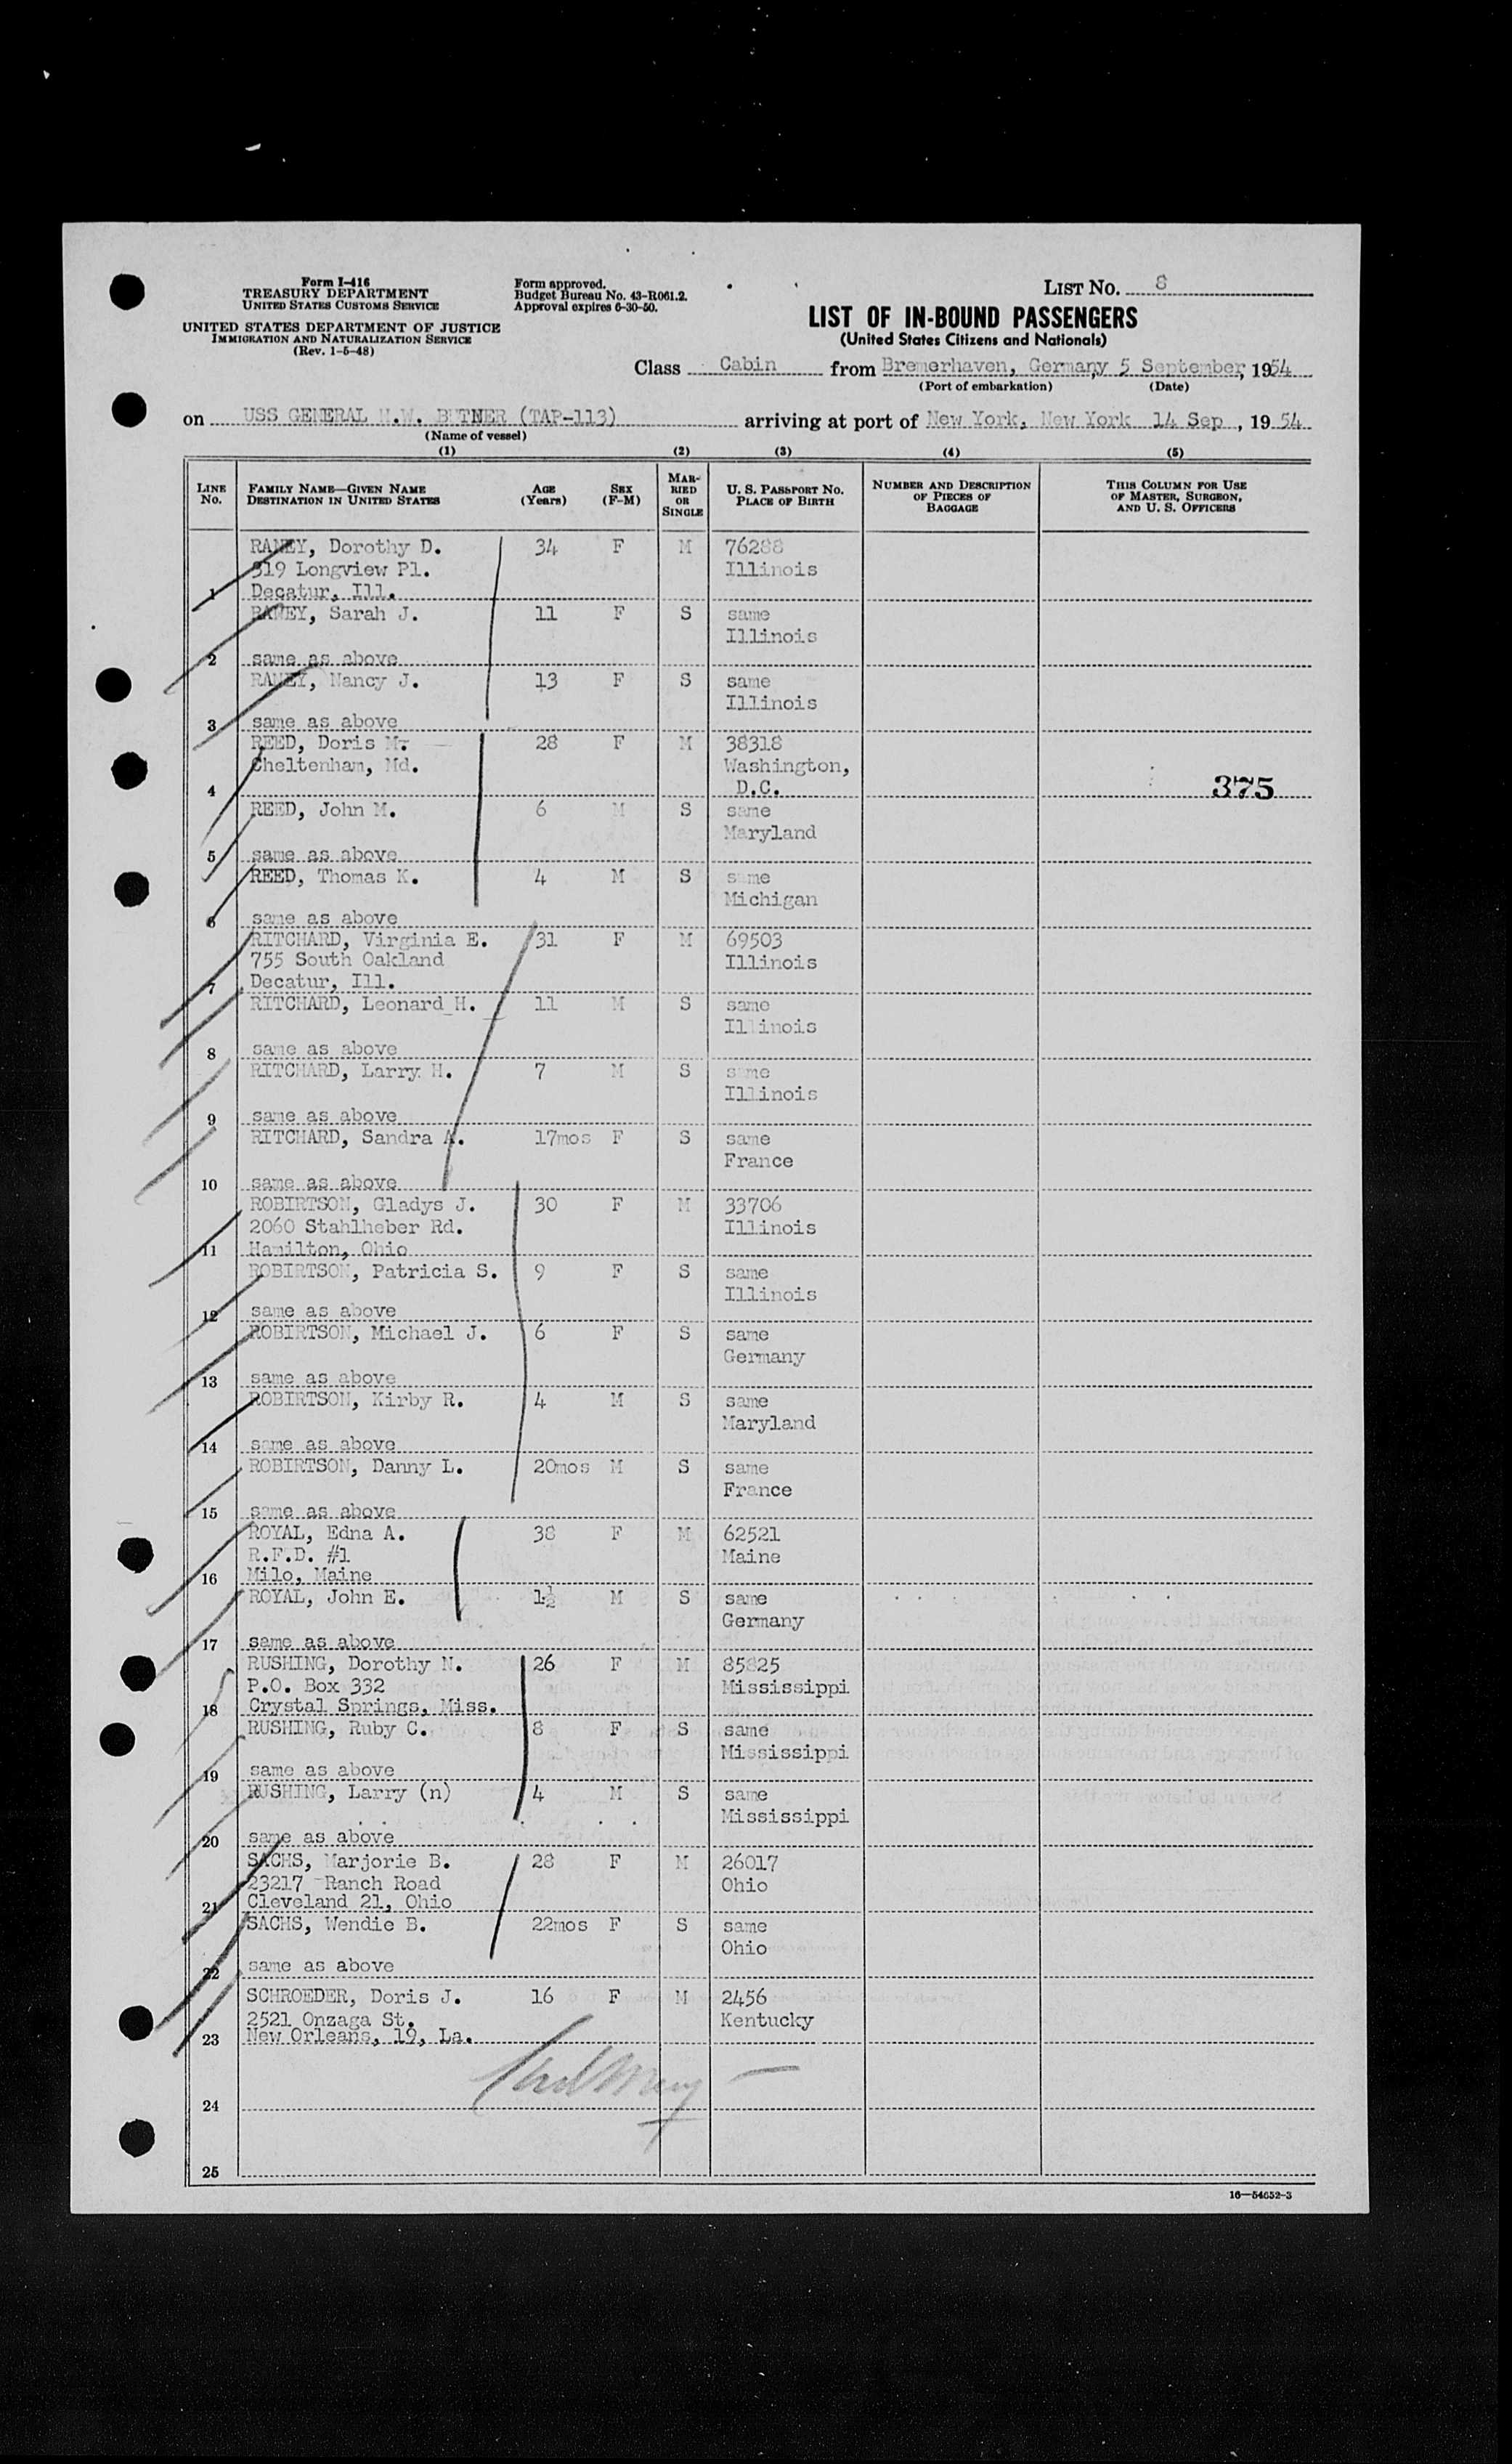 Form I-416
TREASURY DEPARTMENT
UNITED STATES CUSTOMS SERVICE
UNITED STATES DEPARTMENT OF JUSTICE
IMMIGRATION AND NATURALIZATION SERVICE
(Rev. 1-5-48)
Form approved.
Budget Bureau No. 43-R061.2.
Approval expires 6-30-50.
LIST NO. 8
LIST OF IN-BOUND PASSENGERS
(United States Citizens and Nationals)
Class Cabin from Bremerhaven, Germany, 5 September, 1954
(Port of embarkation) (Date)
on USS GENERAL M.W. BUTNER (TAP-113) arriving at port of New York, New York 14 Sep, 1954
(Name of vessel)
(1) (2) (3) (4) (5)
LINE NO. FAMILY NAME—GIVEN NAME DESTINATION IN UNITED STATES AGE (Years) SEX (F-M) MARRIED OR SINGLE U. S. PASSPORT NO. PLACE OF BIRTH NUMBER AND DESCRIPTION OF PIECES OF BAGGAGE THIS COLUMN FOR USE OF MASTER, SURGEON, AND U. S. OFFICERS
RAMEY, Dorothy D. 34 F M 76288
319 Longview Pl. Illinois
1 Decatur, Ill.
RAMEY, Sarah J. 11 F S same
Illinois
2 same as above
RAMEY, Nancy J. 13 F S same
Illinois
3 same as above
REED, Doris M. 28 F M 38318
Cheltenham, Md. Washington,
4 D.C. 375
REED, John M. 6 M S same
Maryland
5 same as above
REED, Thomas K. 4 M S same
Michigan
6 same as above
RITCHARD, Virginia E. 31 F M 69503
755 South Oakland Illinois
7 Decatur, Ill.
RITCHARD, Leonard H. 11 M S same
Illinois
8 same as above
RITCHARD, Larry H. 7 M S same
Illinois
9 same as above
RITCHARD, Sandra A. 17mos F S same
France
10 same as above
ROBIRTSON, Gladys J. 30 F M 33706
2060 Stahlheber Rd. Illinois
11 Hamilton, Ohio
ROBIRTSON, Patricia S. 9 F S same
Illinois
12 same as above
ROBIRTSON, Michael J. 6 F S same
Germany
13 same as above
ROBIRTSON, Kirby R. 4 M S same
Maryland
14 same as above
ROBIRTSON, Danny L. 20mos M S same
France
15 same as above
ROYAL, Edna A. 38 F M 62521
R.F.D. #1 Maine
16 Milo, Maine
ROYAL, John E. 1½ M S same
Germany
17 same as above
RUSHING, Dorothy N. 26 F M 85825
P.O. Box 332 Mississippi
18 Crystal Springs, Miss.
RUSHING, Ruby C. 8 F S same
Mississippi
19 same as above
RUSHING, Larry (n) 4 M S same
Mississippi
20 same as above
SACHS, Marjorie B. 28 F M 26017
23217 Ranch Road Ohio
21 Cleveland 21, Ohio
SACHS, Wendie B. 22mos F S same
Ohio
22 same as above
SCHROEDER, Doris J. 16 F M 2456
2521 Onzaga St. Kentucky
23 New Orleans, 19, La.
24
25
16—54652-3